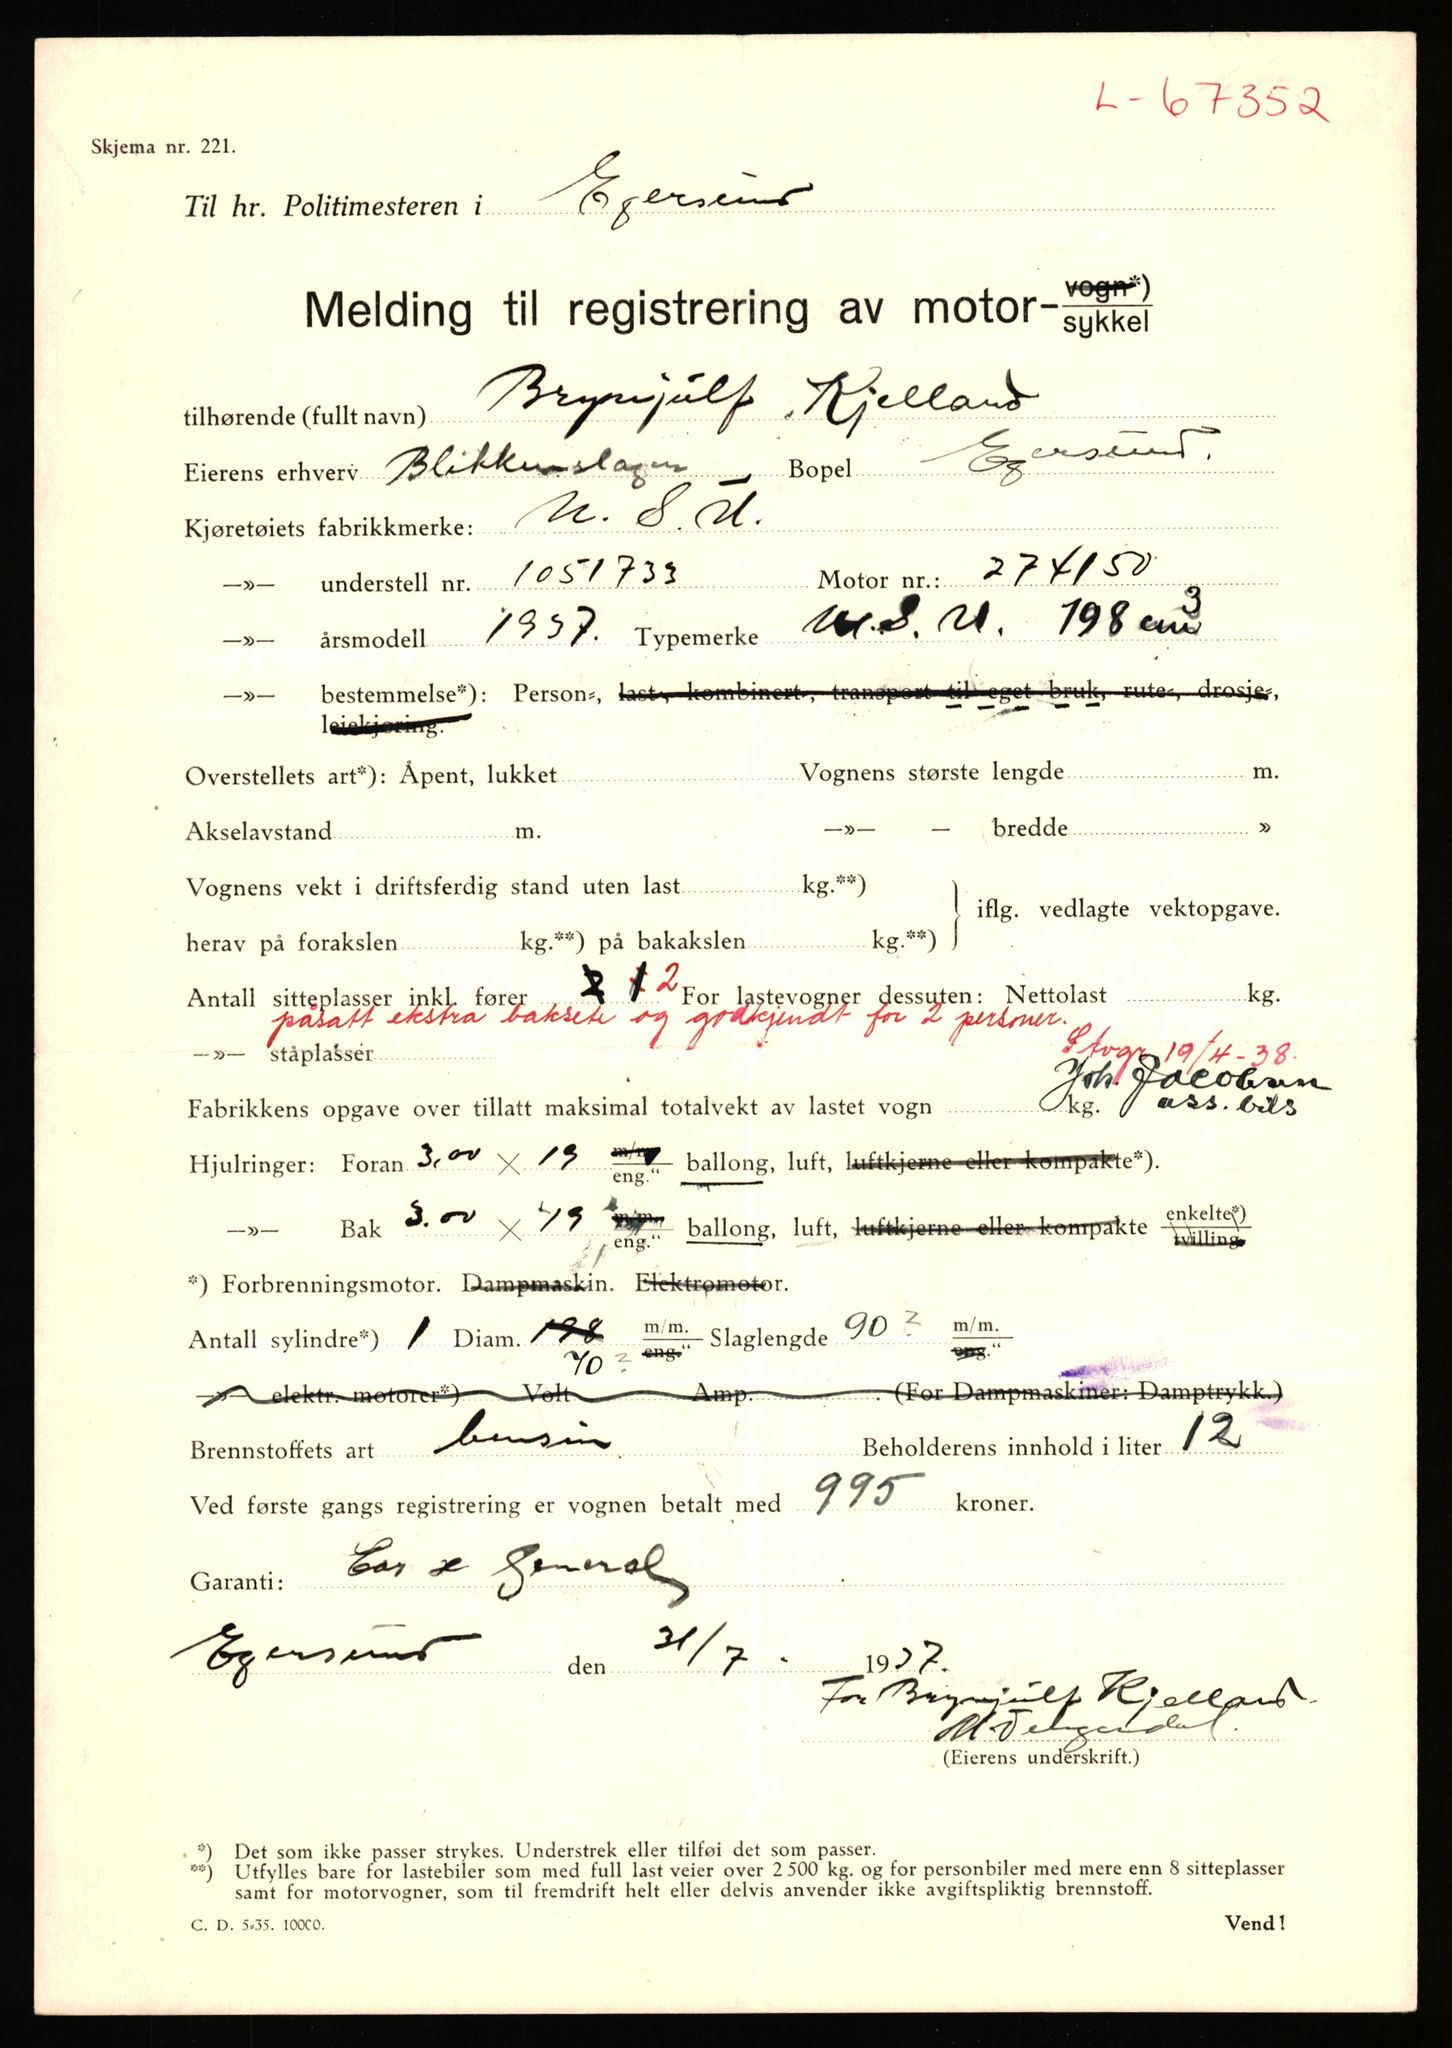 L-67352
Skjema nr. 221.
Til hr. Politimesteren i Egersund
Melding til registrering av motor-vogn*)
sykkel
tilhørende (fullt navn) Brynjulf Kjelland
Eierens erhverv Blikkenslager Bopel Egersund.
Kjøretøiets fabrikkmerke: N. S. U.
—»— understell nr. 1051733 Motor nr.: 274150
—»— årsmodell 1937. Typemerke N.S.U. 198 cm³
—»— bestemmelse*): Person-, last-, kombinert-, transport til eget bruk, rute-, drosje-,
leiekjøring.
Overstellets art*): Åpent, lukket Vognens største lengde m.
Akselavstand m. —»— — bredde »
Vognens vekt i driftsferdig stand uten last kg.**)
iflg. vedlagte vektopgave.
herav på forakslen kg.**) på bakakslen kg.**)
Antall sitteplasser inkl. fører 2 1 2 For lastevogner dessuten: Nettolast kg.
påsatt ekstra baksete og godkjendt for 2 personer.
—»— ståplasser Stvgr. 19/4-38.
Joh. Jacobsen
Fabrikkens opgave over tillatt maksimal totalvekt av lastet vogn kg. ass. bils
Hjulringer: Foran 3.00 × 19 m/m eng." ballong, luft, luftkjerne eller kompakte*).
—»— Bak 3.00 × 19 m/m. eng." ballong, luft, luftkjerne eller kompakte enkelte*) tvilling
*) Forbrenningsmotor. Dampmaskin. Elektromotor.
Antall sylindre*) 1 Diam. 198 m/m. eng." Slaglengde 90? m/m. eng."
70?
—»— elektr. motorer*) Volt Amp. . (For Dampmaskiner: Damptrykk.)
Brennstoffets art bensin Beholderens innhold i liter 12
Ved første gangs registrering er vognen betalt med 995 kroner.
Garanti: Car & General
Egersund den 31/7 . 1937.
For Brynjulf Kjelland.
(Eierens underskrift.)
*) Det som ikke passer strykes. Understrek eller tilføi det som passer.
**) Utfylles bare for lastebiler som med full last veier over 2500 kg. og for personbiler med mere enn 8 sitteplasser
samt for motorvogner, som til fremdrift helt eller delvis anvender ikke avgiftspliktig brennstoff.
C. D. 5-35. 10000. Vend!